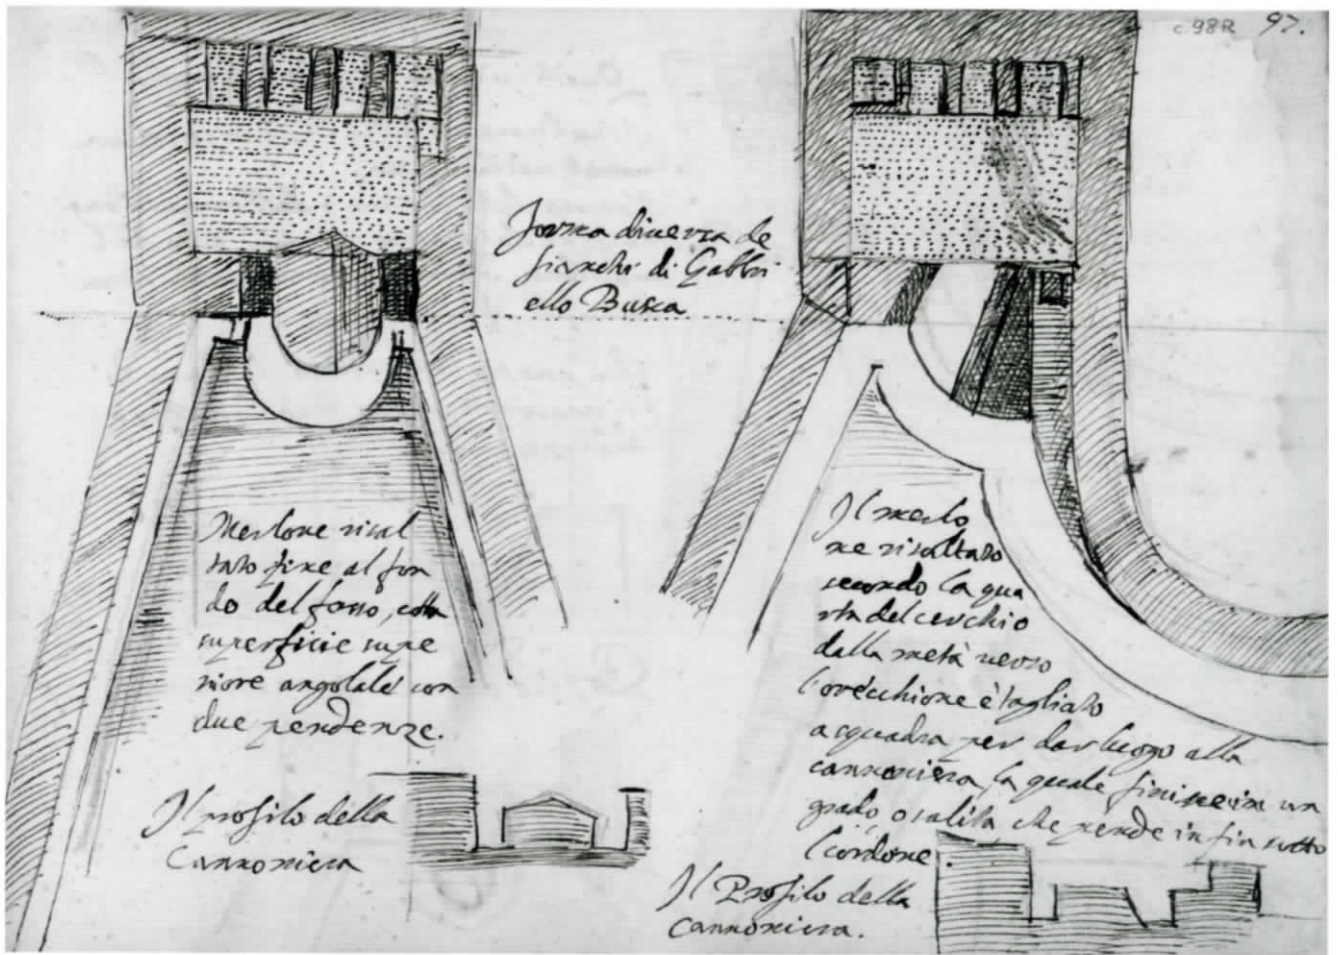 c. 98R 97.
Forma diversa de
fianchi di Gabbri
ello Busca
Merlone risal
tato fine al fon
do del fosso, colla
superficie supe
riore angolale con
due pendenze.
Il profilo della
Cannoniera
Il merlo
ne risaltato
secondo la qua
rta del cerchio
dalla metà verso
l'orecchione è tagliato
a squadra per dar luogo alla
cannoniera la quale finisce in un
grado, o salita che pende in fin sotto
il cordone.
Il Profilo della
Cannoniera.